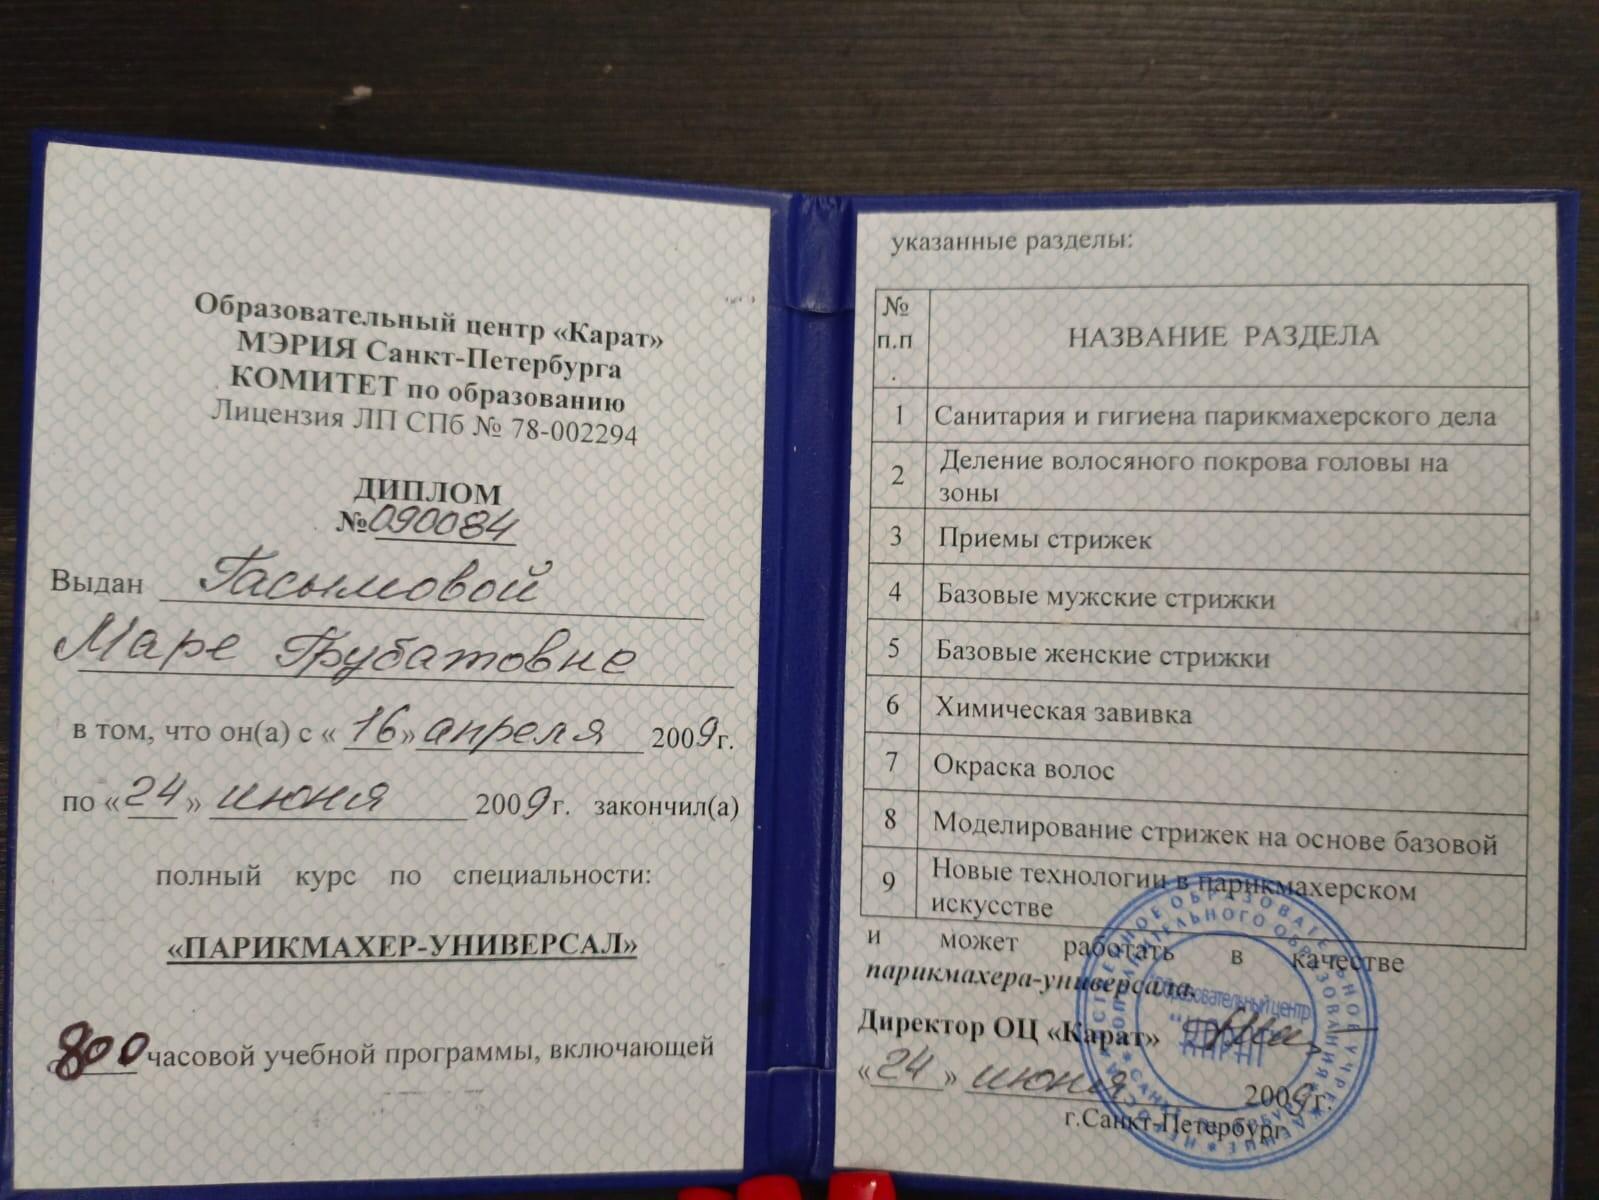 Образовательный центр «Карат»
МЭРИЯ Санкт-Петербурга
КОМИТЕТ по образованию
Лицензия ЛП СПб № 78-002294
ДИПЛОМ
№090084
Выдан Гасымовой
Маре Грубатовне
в том, что он(а) с « 16» апреля 2009г.
по «24» июня 2009г. закончил(а)
полный курс по специальности:
«ПАРИКМАХЕР-УНИВЕРСАЛ»
800 часовой учебной программы, включающей
указанные разделы:
№ п.п. НАЗВАНИЕ РАЗДЕЛА
1 Санитария и гигиена парикмахерского дела
2 Деление волосяного покрова головы на
зоны
3 Приемы стрижек
4 Базовые мужские стрижки
5 Базовые женские стрижки
6 Химическая завивка
7 Окраска волос
8 Моделирование стрижек на основе базовой
9 Новые технологии в парикмахерском
искусстве
и может работать в качестве
парикмахера-универсала.
Директор ОЦ «Карат»
«24» июня 2009г.
г.Санкт-Петербург
Образовательный центр